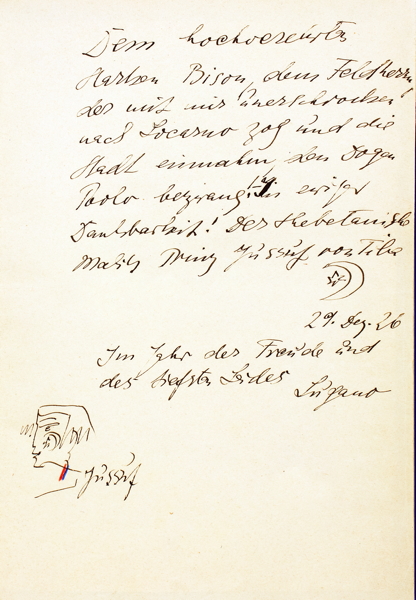 Dem hochverehrten
starken Bison, dem Feldherrn
der mit mir unerschrocken
nach Locarno zog und die
Stadt einnahm, den Dogen
Paolo bezwang in ewiger
Dankbarkeit! Der thebetanische
Malik Prinz Jussuf von Tiba
29. Dez. 26
Im Jahr der Freude und
des tiefsten Leides Lugano
Jussuf